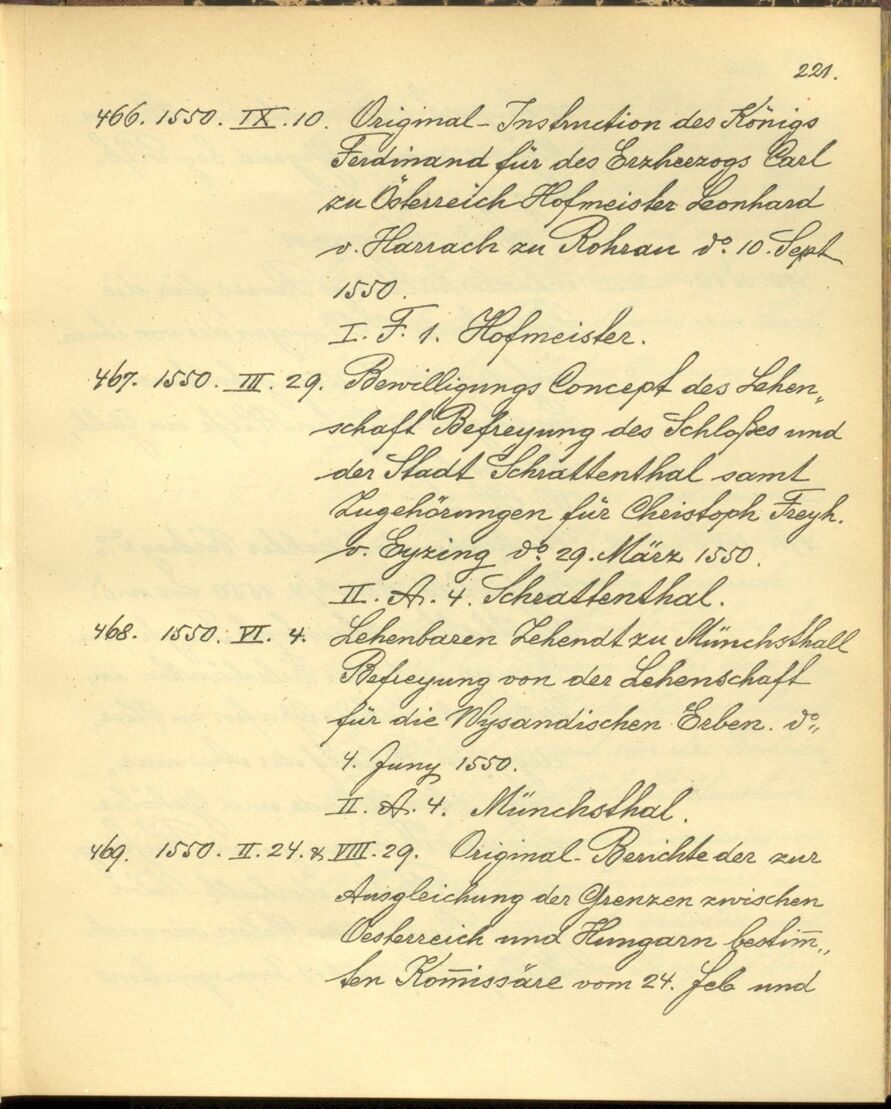 221.
466. 1550. IX. 10. Original-Instruction des Königs
Ferdinand für des Erzherzogs Carl
zu Österreich Hofmeister Leonhard
v. Harrach zu Rohrau do 10. Sept
1550.
I. F. 1. Hofmeister.
467. 1550. III. 29. Bewilligungs Concept des Lehen„
schaft Befreyung des Schloßes und
der Stadt Schrattenthal samt
Zugehörungen für Christoph Freyh.
v. Eyzing do 29. März 1550.
II. A. 4. Schrattenthal.
468. 1550. VI. 4. Lehenbaren Zehendt zu Münchsthall
Befreyung von der Lehenschaft
für die Wysandischen Erben. do„
4. Juny 1550.
II. A. 4. Münchsthal.
469. 1550. II. 24. & VIII. 29. Original-Berichte der zur
Ausgleichung der Grenzen zwischen
Oesterreich und Hungarn bestim̅„
ten Kom̅issäre vom 24. Feb und